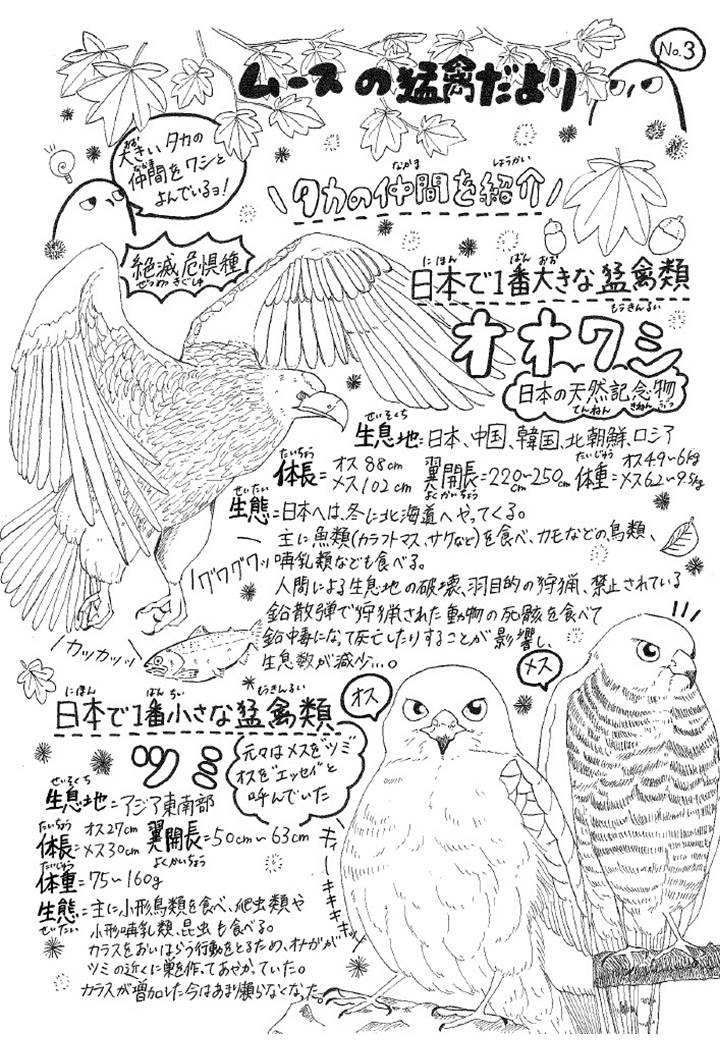 No.3
ムースの猛禽だより
大きいタカの
仲間をワシと
よんでいるヨ!
\タカの仲間を紹介/
絶滅危惧種
日本で1番大きな猛禽類
オオワシ
日本の天然記念物
生息地=日本、中国、韓国、北朝鮮、ロシア
体長=オス88cm メス102cm 翼開長=220cm~250cm 体重=オス4.9~6kg メス6.2~9.5kg
生態=日本へは、冬に北海道へやってくる。
主に魚類(カラフトマス、サケなど)を食べ、カモなどの鳥類、
哺乳類なども食べる。
人間による生息地の破壊、羽目的の狩猟、禁止されている
鉛散弾で狩猟された動物の死骸を食べて
鉛中毒になって死亡したりすることが影響し、
生息数が減少…。
グワグワッ
カッカッッ
日本で1番小さな猛禽類
ツミ
元々はメスを"ツミ"
オスを"エッサイ"と
呼んでいた
オス
メス
生息地=アジア東南部
体長=オス27cm メス30cm 翼開長=50cm~63cm
体重=75~160g
生態=主に小形鳥類を食べ、爬虫類や
小形哺乳類、昆虫も食べる。
カラスをおいはらう行動をとるため、オナガが
ツミの近くに巣を作ってあやかっていた。
カラスが増加した今はあまり頼らなくなった。